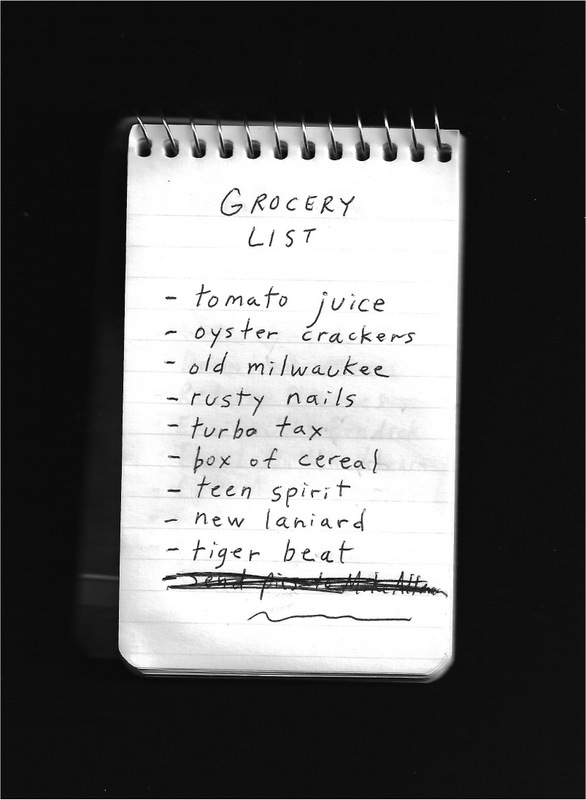 GROCERY
LIST
- tomato juice
- oyster crackers
- old milwaukee
- rusty nails
- turbo tax
- box of cereal
- teen spirit
- new laniard
- tiger beat